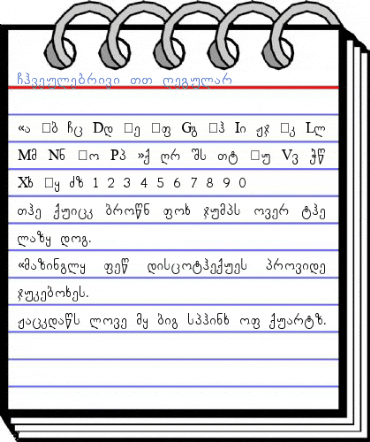 ჩჰვეულებრივი თთ ღეგულარ
«ა □ბ ჩც Dდ □ე □ფ Gგ □ჰ Iი ჟჯ □კ Lლ
Mმ Nნ □ო Pპ »ქ ღრ შს თტ □უ Vვ ჭწ
Xხ □ყ ძზ 1 2 3 4 5 6 7 8 9 0
თჰე ქუიცკ ბროწნ ფოხ ჯუმპს ოვერ ტჰე
ლაზყ დოგ.
«მაზინგლყ ფეწ დისცოტჰექუეს პროვიდე
ჯუკებოხეს.
ჟაცკდაწს ლოვე მყ ბიგ სპჰინხ ოფ ქუარტზ.